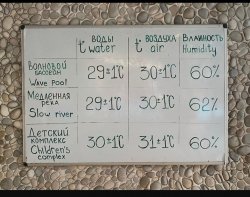 t воды water t воздуха air Влажность Humidity
Волновой бассейн Wave Pool 29±1°C 30±1°C 60%
Медленная река Slow river 29±1°C 30±1°C 62%
Детский комплекс Children's complex 30±1°C 31±1°C 60%